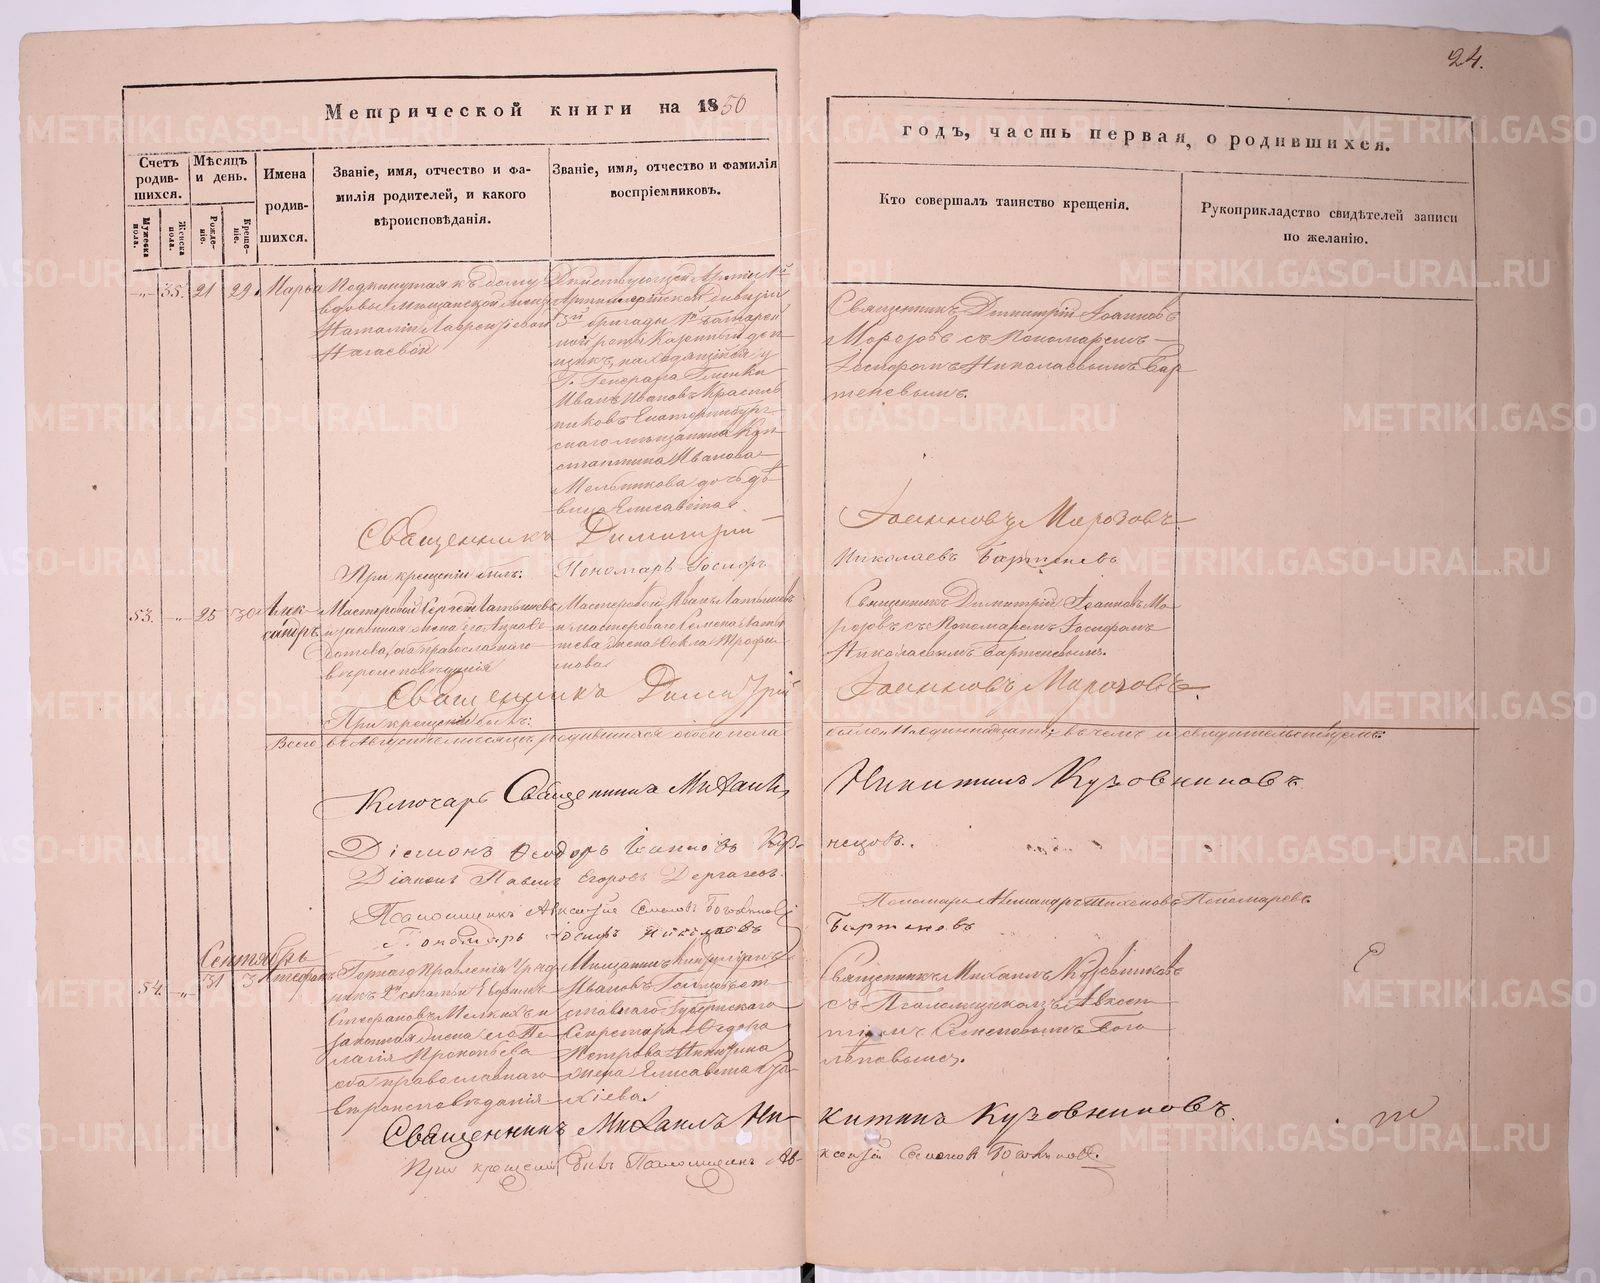 24.
Метрической книги на 1850
годъ, часть первая, о родившихся.
Счетъ родив-шихся.
Мѣсяцъ и день.
Имена родив-шихся.
Званіе, имя, отчество и фа-
милія родителей, и какого
вѣроисповѣданія.
Званіе, имя, отчество и фамилія
воспріемниковъ.
Кто совершалъ таинство крещенія.
Рукоприкладство свидѣтелей записи
по желанію.
Мужеска пола.
Женска пола.
Рожде-ніе.
Креще-ніе.
35. 21 29. Марья
Подкинутая къ дому
вдовы мѣщанской жены
Наталіи Лаврентіевой
Нагаевой
Дѣйствующей Арміи
Артиллерійской дивизіи
бригады батарей
ной роты Казенный ден
щикъ, находящійся у
Г. Генерала Глинки
Иванъ Ивановъ Красиль
никовъ Екатеринбург
скаго мѣщанина Кон
стантина Иванова
Мельникова дочь дѣ
вица Елисавета.
Священникъ Димитрій Іоанновъ
Морозовъ съ Пономаремъ
Іосифомъ Николаевымъ Бар
теневымъ.
Священникъ Димитрій Іоанновъ Морозовъ
При крещеніи былъ: Пономарь Іосифъ Николаевъ Бартеневъ
53. 25 30 Алек
сандръ
Мастеровой Сергей Латышевъ
и законная жена его
оба православнаго
вѣроисповѣданія
Мастеровой Иванъ Латышевъ
и мастероваго Семена Латы
шева жена Ѳекла Трофи
мова
Священникъ Димитрій Іоанновъ Мо
розовъ съ Пономаремъ Іосифомъ
Николаевымъ Бартеневымъ.
Священникъ Димитрій Іоанновъ Морозовъ.
При крещеніи былъ:
Всего въ Августѣ мѣсяцѣ родившихся обоего пола
одиннадцать; въ чемъ и свидѣтельствуемъ:
Ключарь Священникъ Михаилъ Никитинъ Кузовниковъ
Діаконъ Ѳеодоръ Іоанновъ Куз-
нецовъ.
Діаконъ Павелъ Егоровъ Дергачевъ.
Псаломщикъ Авксентій Семеновъ Боголѣповъ
Пономарь Александръ Тихоновъ Пономаревъ
Пономарь Іосифъ Николаевъ Бартеневъ
Сентябрь
54. 31 3 Стефанъ
Горнаго Правленія Уряд
никъ 2й статьи Евфимъ
Стефановъ Мелкихъ и
законная жена его Пе
лагія Прокопьева
оба православнаго
вѣроисповѣданія
Мѣщанинъ
Ивановъ
ставнаго Губернскаго
Секретаря Ѳедора
Петрова Никитина
жена Елисавета
Священникъ Михаилъ Кузовниковъ
съ Псаломщикомъ Авксен
тіемъ Семеновымъ Бого
лѣповымъ.
Священникъ Михаилъ Ни-
китинъ Кузовниковъ.
При крещеніи былъ Псаломщикъ Ав-
ксентій Семеновъ Боголѣповъ.
METRIKI.GASO-URAL.RU